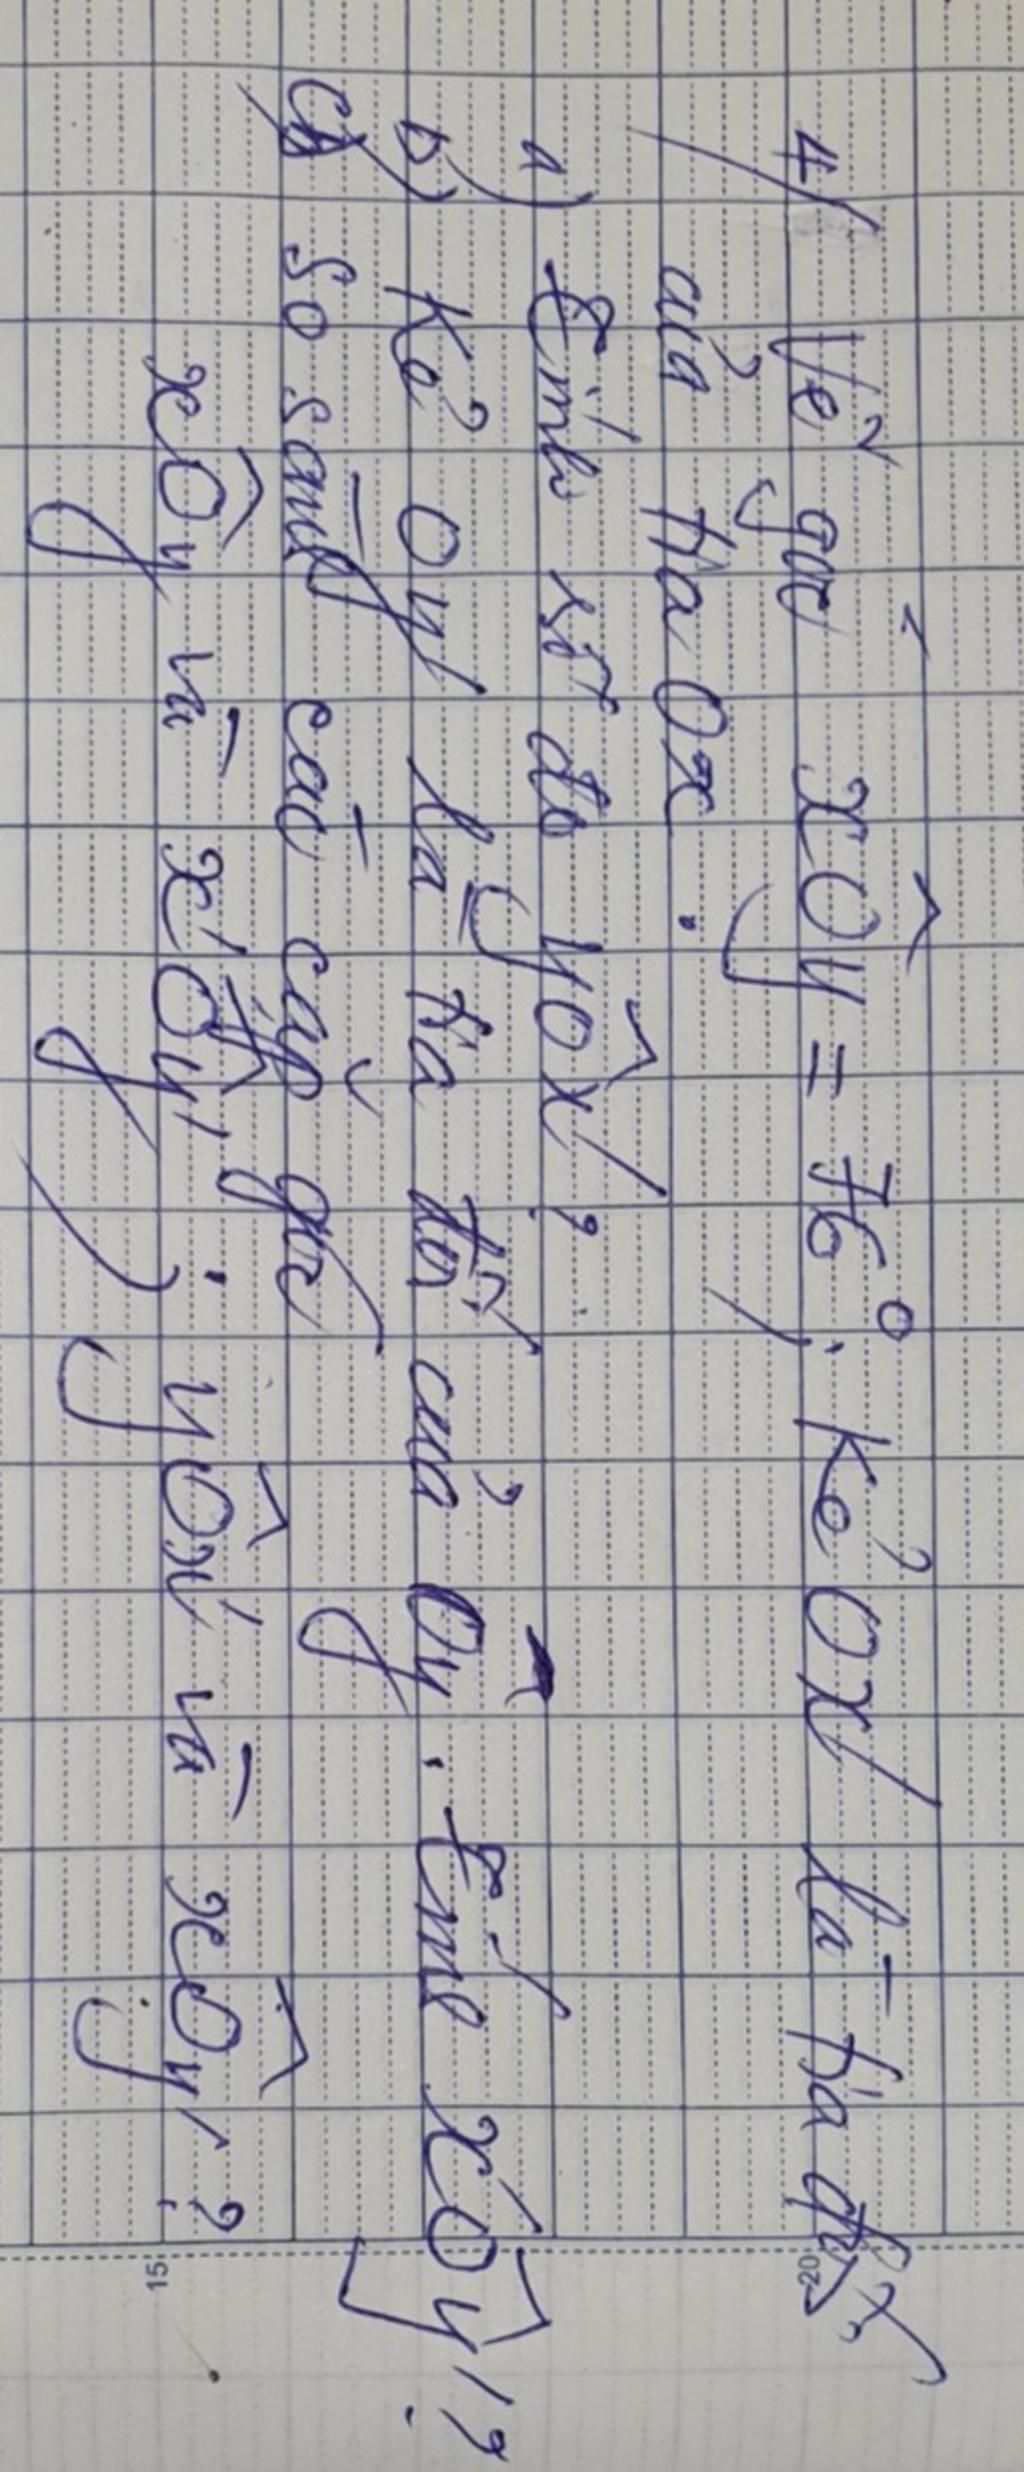 4/ Vẽ góc xOy = 76°, kẻ Ox' là tia đối
của tia Ox.
a) Tính số đo yOx'?
b) Kẻ Oy' là tia đối của Oy. Tính x'Oy'?
c) So sánh các cặp góc
xOy và x'Oy'; yOx' và xOy'?
20
15